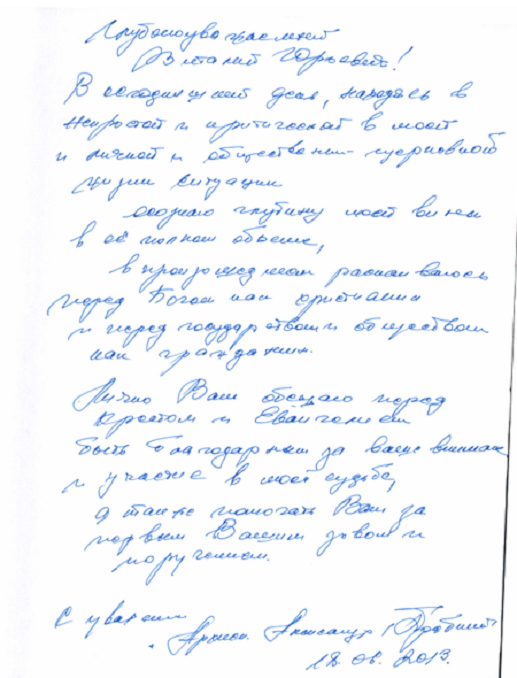 Глубокоуважаемый
Виталий Юрьевич!
В сегодняшний день, находясь в
непростой и критической в моей
и личной и общественно-церковной
жизни ситуации
осознаю глубину моей вины
в её полном объеме,
в произошедшем раскаиваюсь
перед Богом как христианин
и перед государством и обществом
как гражданин.
Лично Вам обещаю перед
Крестом и Евангелием
быть благодарным за ваше внимание
и участие в моей судьбе,
а также помогать Вам за
первым Вашим зовом и
поручением.
С уважением
Александр
2013.